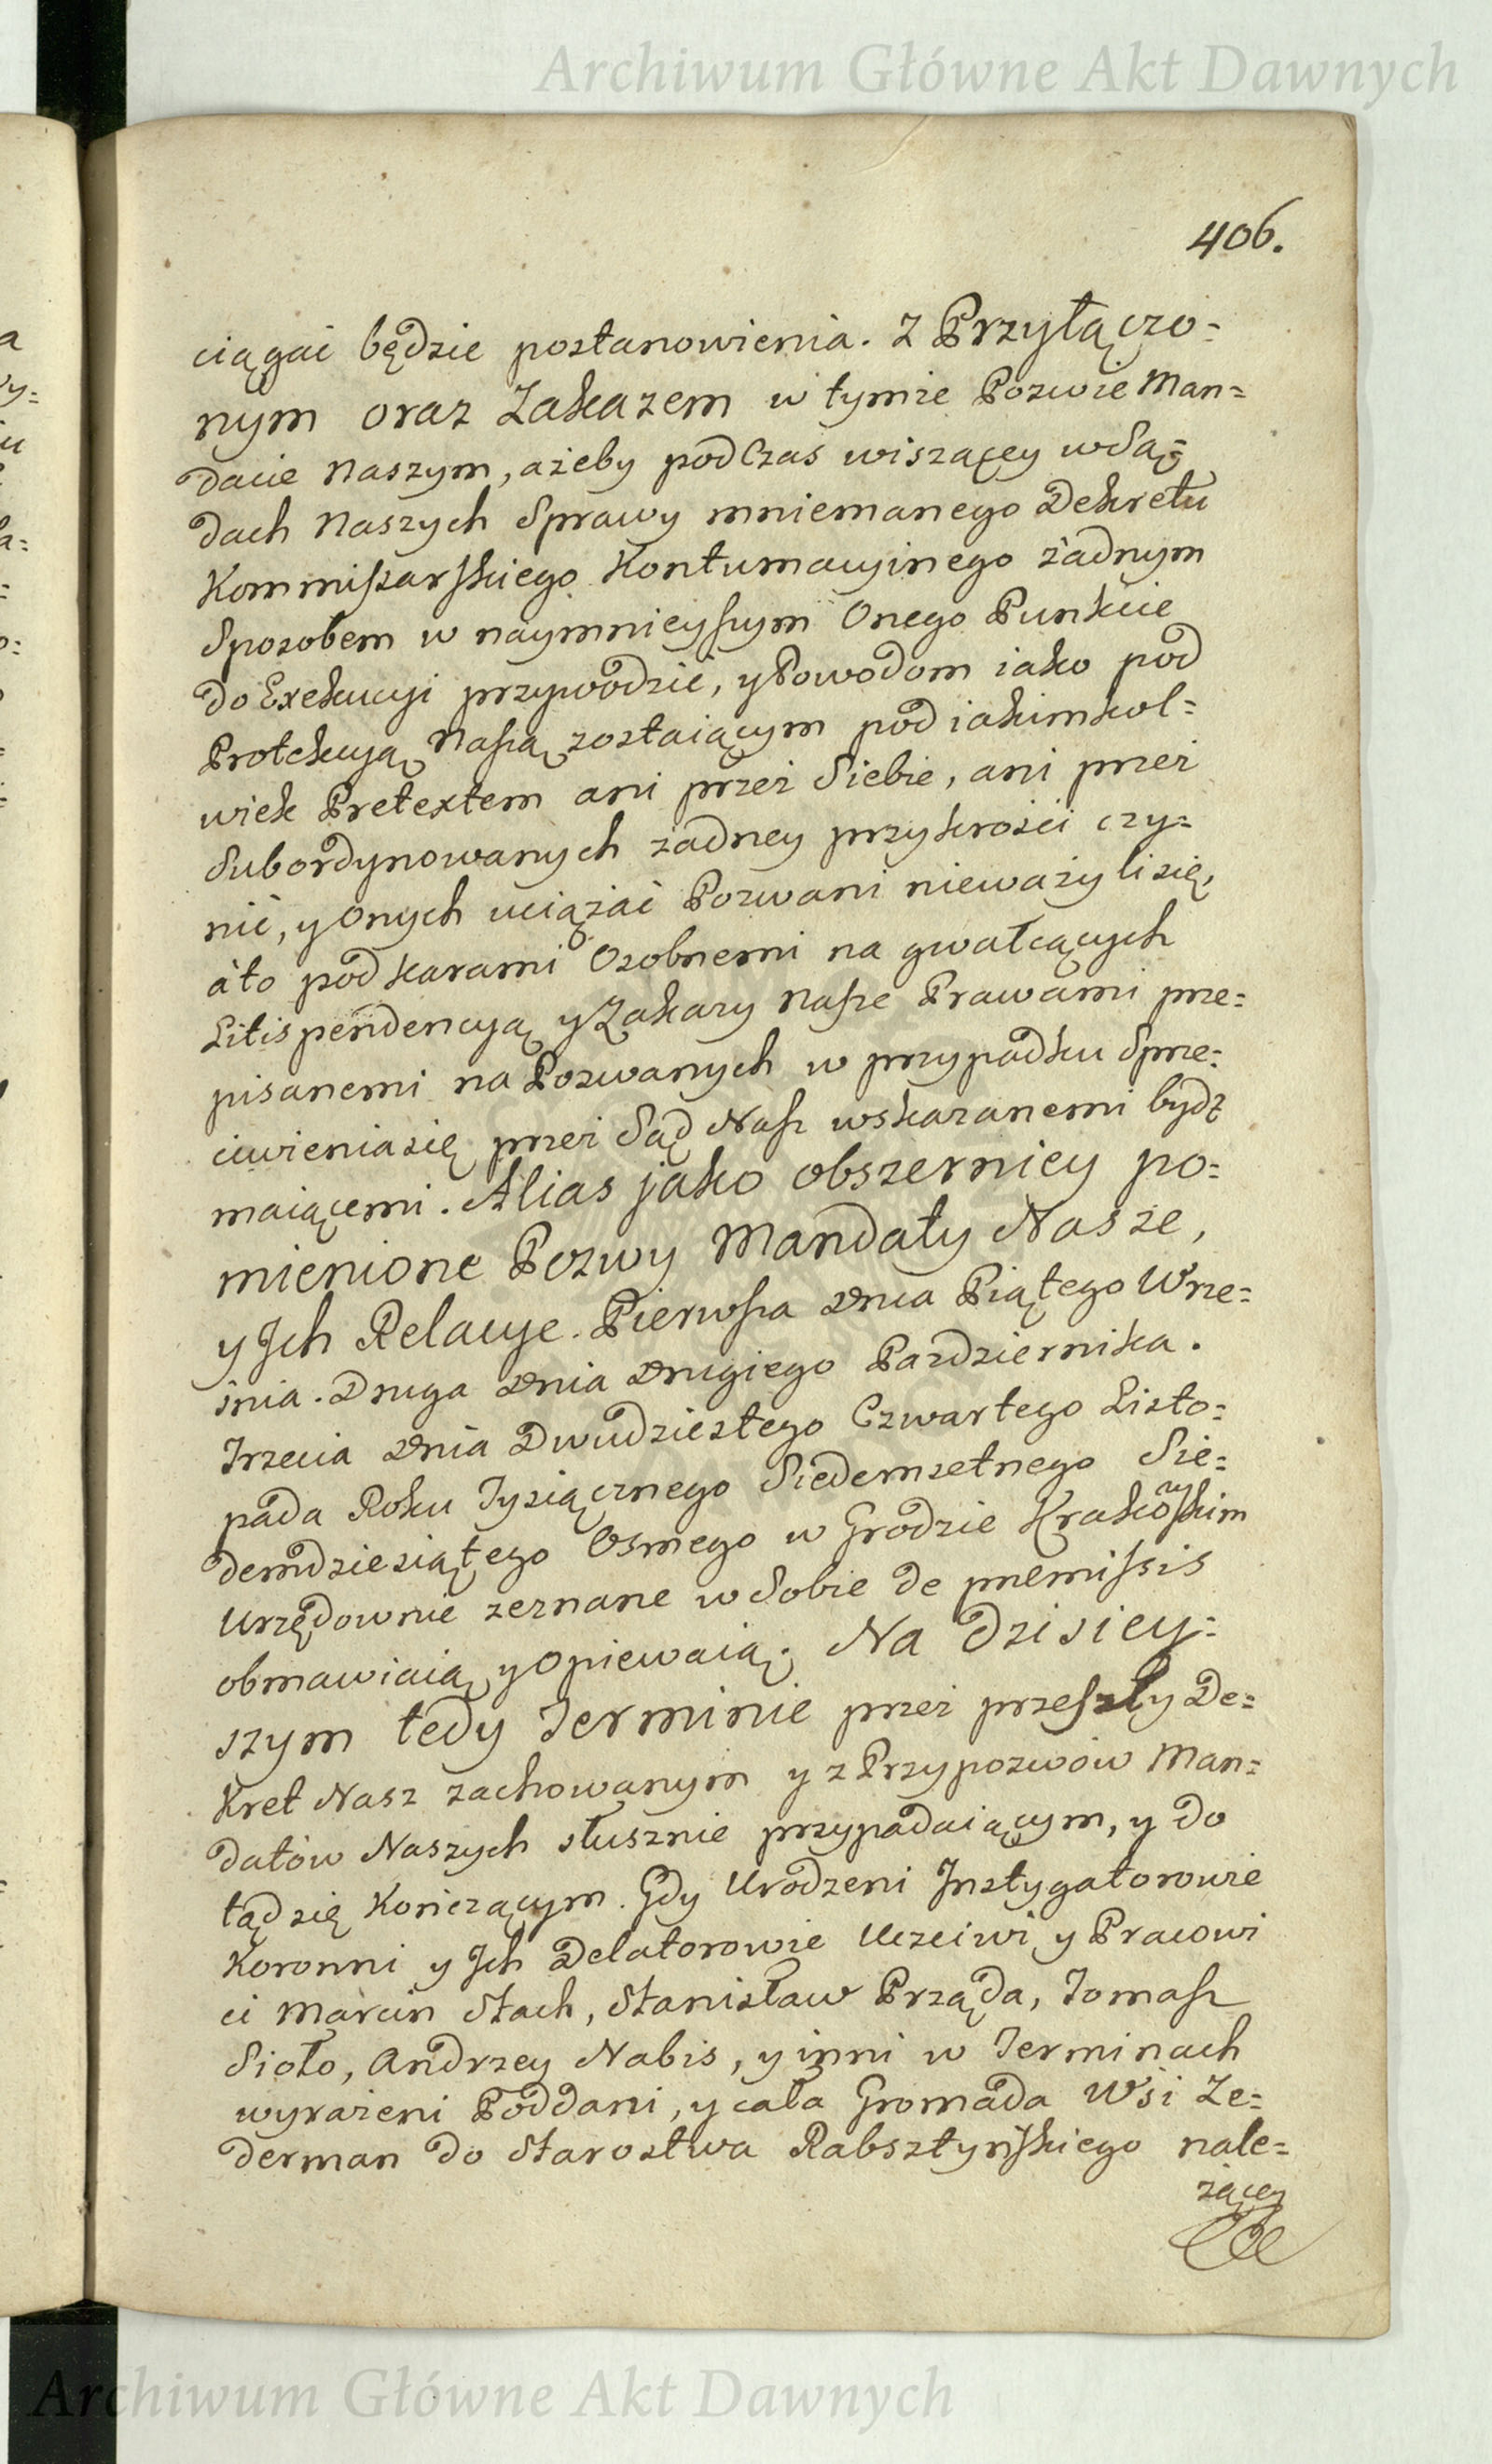 Archiwum Główne Akt Dawnych
406.
ciągać będzie postanowienia. Z Przyłączo=
nym oraz Zakazem w tymże Pozwie Man=
dacie Naszym, ażeby podczas wiszącey w Są=
dach Naszych Sprawy mniemanego Dekretu
Kommissarskiego Kontumacyinego żadnym
Sposobem w naymnieyszym Onego Punkcie
do Exekucyi przywodzić, y Powodom iako pod
Protekcyą Naszą zostaiącym pod iakimkol=
wiek Pretextem ani przez Siebie, ani przez
Subordynowanych żadney przykrości czy=
nić, y Onych uciążać Pozwani nieważyli się,
a to pod karami Osobnemi na gwałcących
Litispendencyą y Zakazy Nasze Prawami prze=
pisanemi na Pozwanych w przypadku Sprze=
ciwienia się przez Sąd Nasz wskazanemi bydź
maiącemi. Alias jako obszerniey po=
mienione Pozwy Mandaty Nasze,
y Jch Relacye. Pierwsza Dnia Piątego Wrze=
śnia. Druga Dnia Drugiego Pazdziernika.
Trzecia Dnia Dwudziestego Czwartego Listo=
pada Roku Tysiącznego Siedemsetnego Sie=
demdziesiątego Osmego w Grodzie Krakowskim
Urzędownie zeznane w Sobie de premissis
obmawiaią y Opiewaią. Na Dzisiey=
szym tedy Terminie przez przeszły De=
kret Nasz zachowanym y z Przypozwów Man=
datów Naszych słusznie przypadaiącym, y do
tąd się kończącym. Gdy Urodzeni Jnstygatorowie
Koronni y Jch Delatorowie Uczciwi y Pracowi
ci Marcin Stach, Stanisław Prząda, Tomasz
Sioło, Andrzey Nabis, y inni w Terminach
wyrażeni Poddani, y cała Gromada Wsi Ze=
derman do Starostwa Rabsztyńskiego nale=
żącey
Archiwum Główne Akt Dawnych